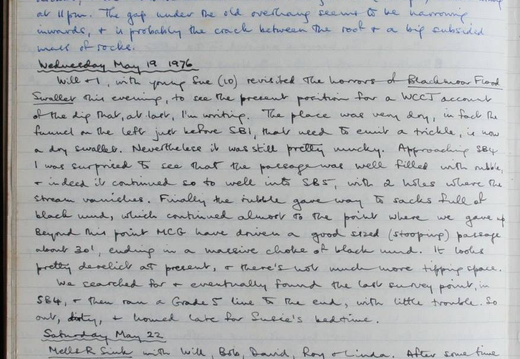 at 11pm. The gap under the old overhang seems to be narrowing
inwards, & is probably the crack between the roof & a big subsided
mass of rocks.
Wednesday May 19 1976
Will & I, with young Sue (10) revisited the horrors of Blackmoor Flood
Swallet this evening, to see the present position for a WCCJ account
of the dig that, at last, I'm writing. The place was very dry, in fact the
funnel on the left just before SB1, that used to emit a trickle, is now
a dry swallet. Nevertheless it was still pretty mucky. Approaching SB4
I was surprised to see that the passage was well filled with rubble,
& indeed it continued so to well into SB5, with 2 holes where the
stream vanishes. Finally the rubble gave way to sacks full of
black mud, which continued almost to the point where we gave up
Beyond this point MCG have driven a good sized (stooping) passage
about 30', ending in a massive choke of black mud. It looks
pretty derelict at present, & there's not much more tipping space.
We searched for & eventually found the last survey point, in
SB4, & then ran a Grade 5 line to the end, with little trouble. So
out, dirty, & homed late for Susie's bedtime.
Saturday May 22
Mells R Sink with Will, Bob, David, Roy & Linda. After some time